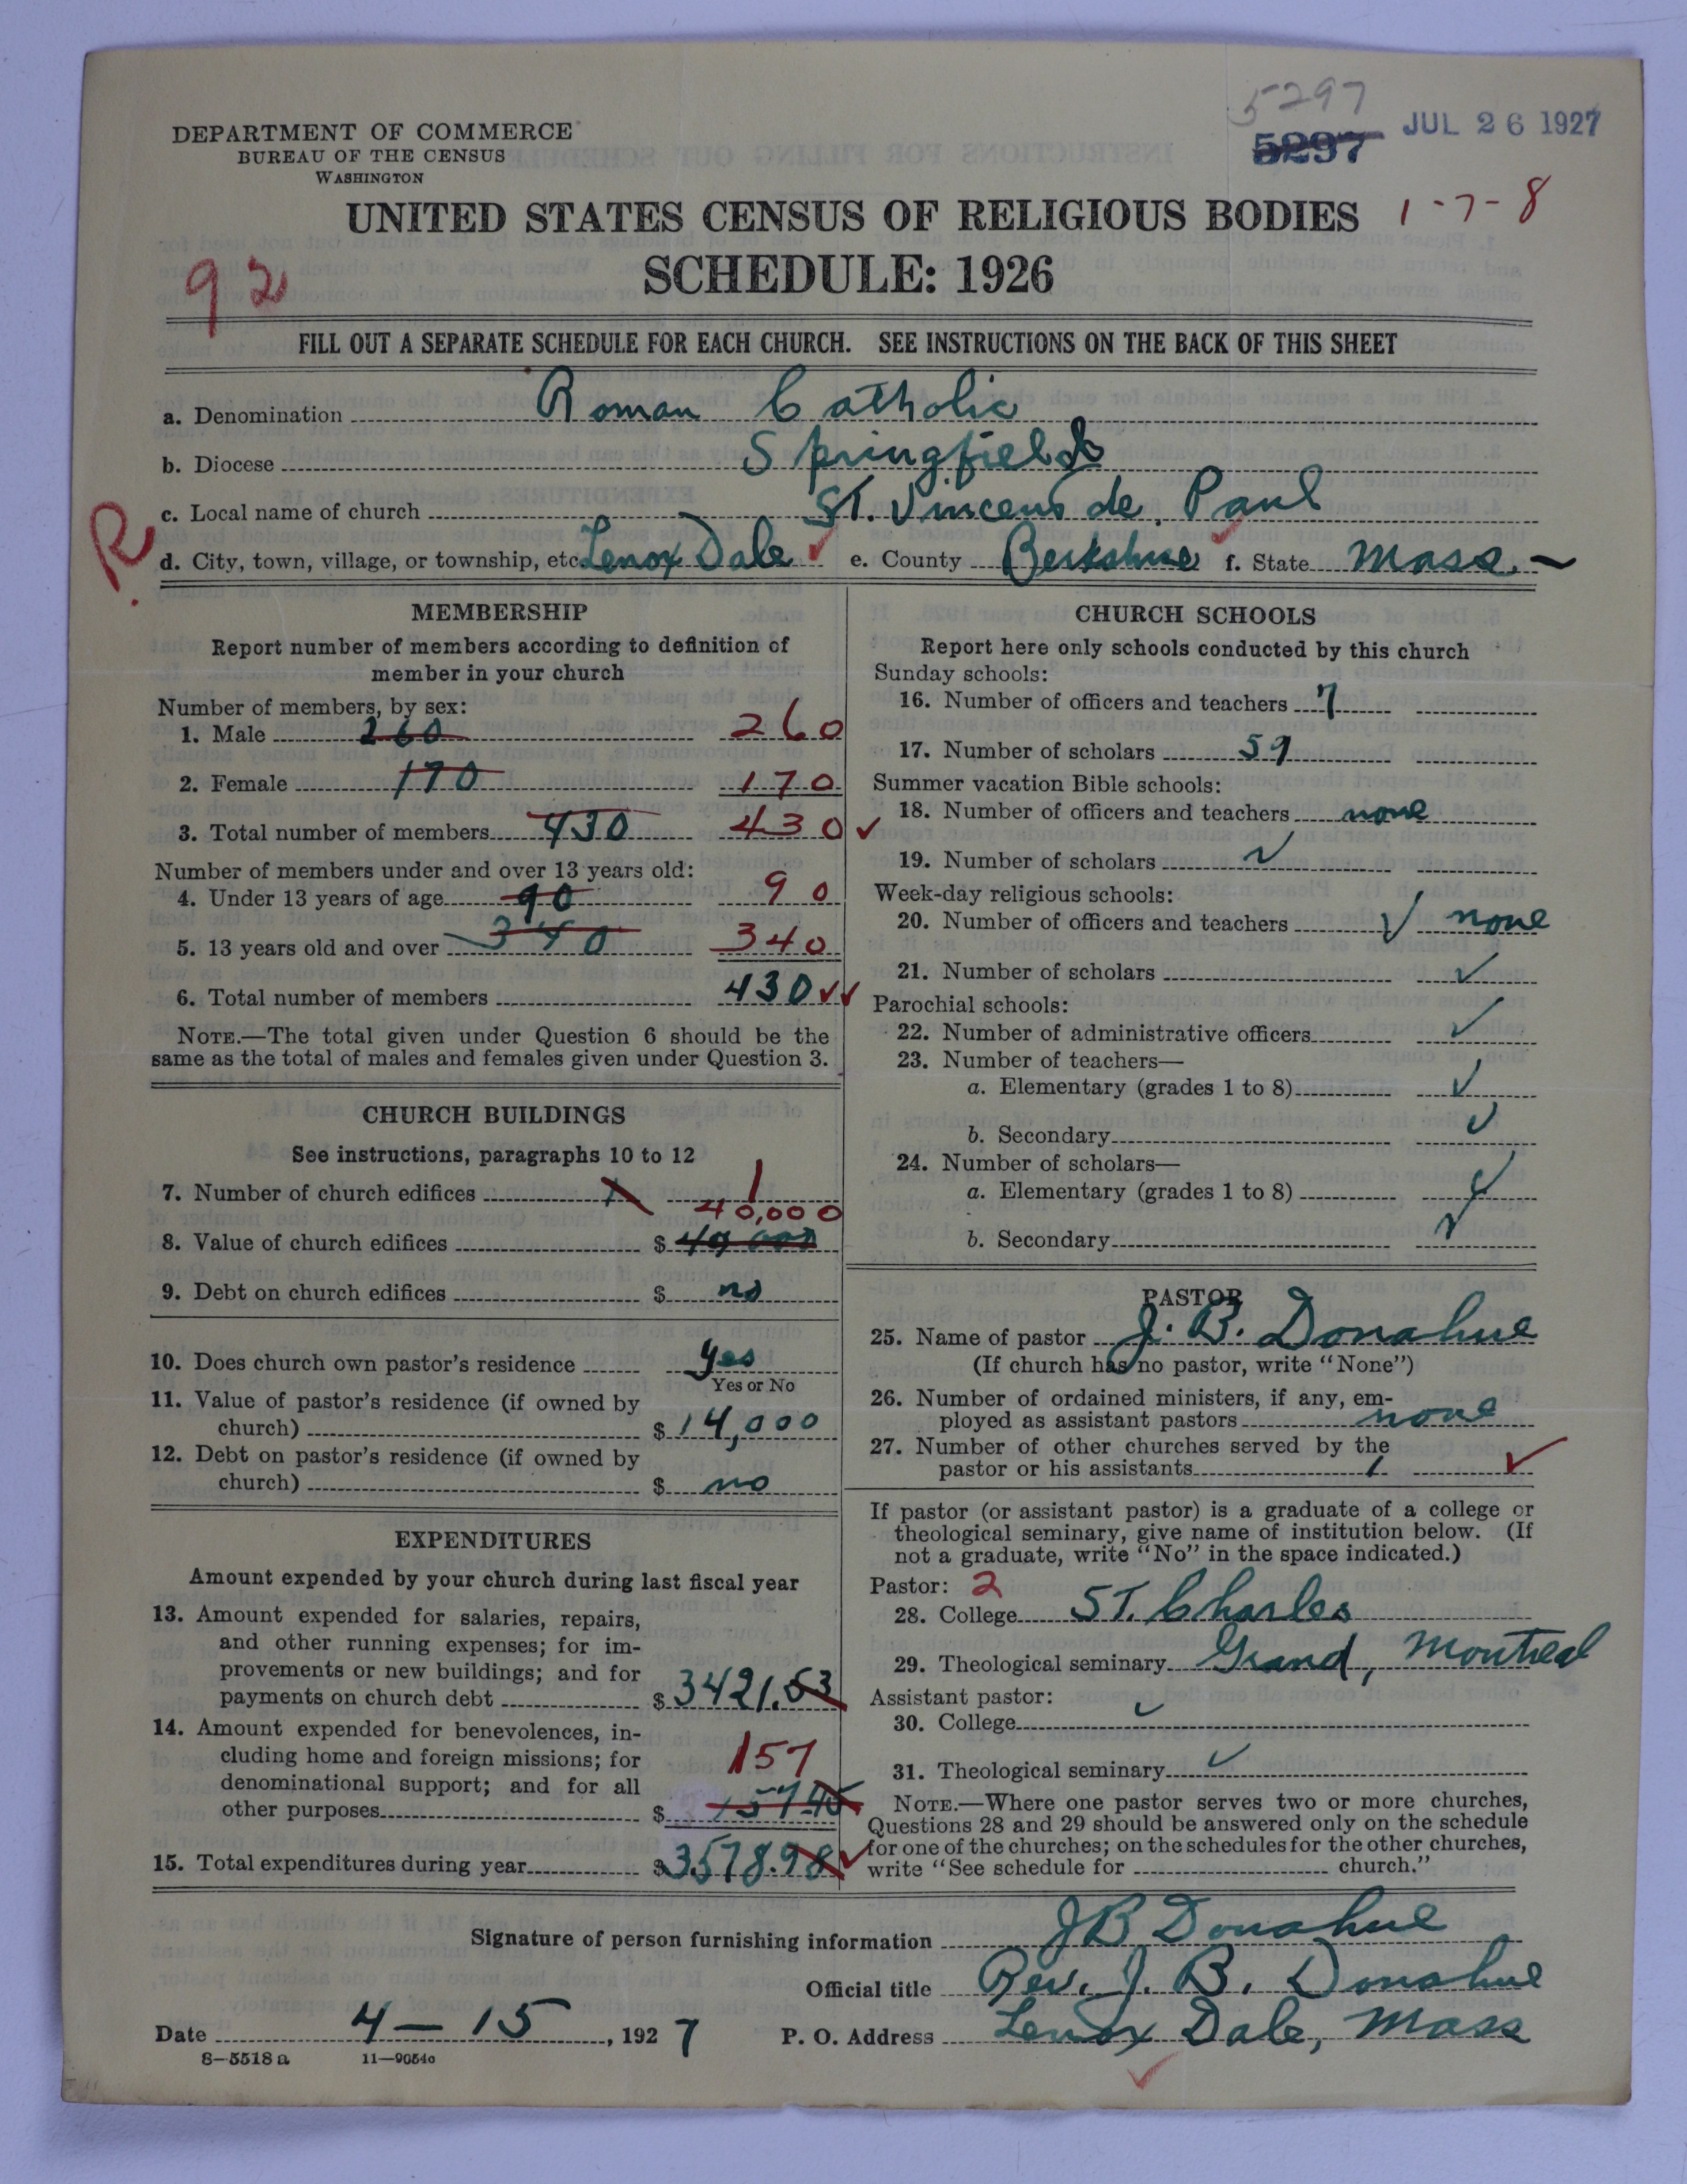 5297
5297 JUL 26 1927
DEPARTMENT OF COMMERCE
BUREAU OF THE CENSUS
WASHINGTON
UNITED STATES CENSUS OF RELIGIOUS BODIES 1-7-8
SCHEDULE: 1926
92
FILL OUT A SEPARATE SCHEDULE FOR EACH CHURCH. SEE INSTRUCTIONS ON THE BACK OF THIS SHEET
a. Denomination Roman Catholic
b. Diocese Springfield
c. Local name of church St. Vincent de Paul
R.
d. City, town, village, or township, etc. Lenox Dale ✓ e. County Berkshire f. State Mass.
MEMBERSHIP
Report number of members according to definition of
member in your church
Number of members, by sex:
1. Male 260 260
2. Female 170 170
3. Total number of members 430 430 ✓
Number of members under and over 13 years old:
4. Under 13 years of age 90 90
5. 13 years old and over 340 340
6. Total number of members 430 ✓✓
NOTE.—The total given under Question 6 should be the
same as the total of males and females given under Question 3.
CHURCH BUILDINGS
See instructions, paragraphs 10 to 12
7. Number of church edifices 1 1
40,000
8. Value of church edifices $ 40 000
9. Debt on church edifices $ no
10. Does church own pastor's residence yes
Yes or No
11. Value of pastor's residence (if owned by
church) $ 14,000
12. Debt on pastor's residence (if owned by
church) $ no
EXPENDITURES
Amount expended by your church during last fiscal year
13. Amount expended for salaries, repairs,
and other running expenses; for im-
provements or new buildings; and for
payments on church debt $ 3421.53
14. Amount expended for benevolences, in-
cluding home and foreign missions; for 157
denominational support; and for all
other purposes $ 157.45
15. Total expenditures during year $ 3578.98 ✓
CHURCH SCHOOLS
Report here only schools conducted by this church
Sunday schools:
16. Number of officers and teachers 7
17. Number of scholars 59
Summer vacation Bible schools:
18. Number of officers and teachers none
19. Number of scholars ✓
Week-day religious schools:
20. Number of officers and teachers ✓ none
21. Number of scholars ✓
Parochial schools:
22. Number of administrative officers ✓
23. Number of teachers—
a. Elementary (grades 1 to 8) ✓
b. Secondary ✓
24. Number of scholars—
a. Elementary (grades 1 to 8) ✓
b. Secondary ✓
PASTOR
25. Name of pastor J. B. Donahue
(If church has no pastor, write "None")
26. Number of ordained ministers, if any, em-
ployed as assistant pastors none
27. Number of other churches served by the
pastor or his assistants 1 ✓
If pastor (or assistant pastor) is a graduate of a college or
theological seminary, give name of institution below. (If
not a graduate, write "No" in the space indicated.)
Pastor: 2
28. College ST. Charles
29. Theological seminary Grand, Montreal
Assistant pastor:
30. College ✓
31. Theological seminary ✓
NOTE.—Where one pastor serves two or more churches,
Questions 28 and 29 should be answered only on the schedule
for one of the churches; on the schedules for the other churches,
write "See schedule for church."
Signature of person furnishing information JB Donahue
Official title Rev. J. B. Donahue
Date 4-15, 1927 P. O. Address Lenox Dale, Mass
8-5518 a 11-9054c